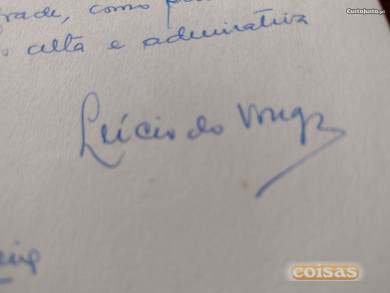 rade, como
alta e admirativa
Lúcia do Vouga
CustoJusto.pt
coisas